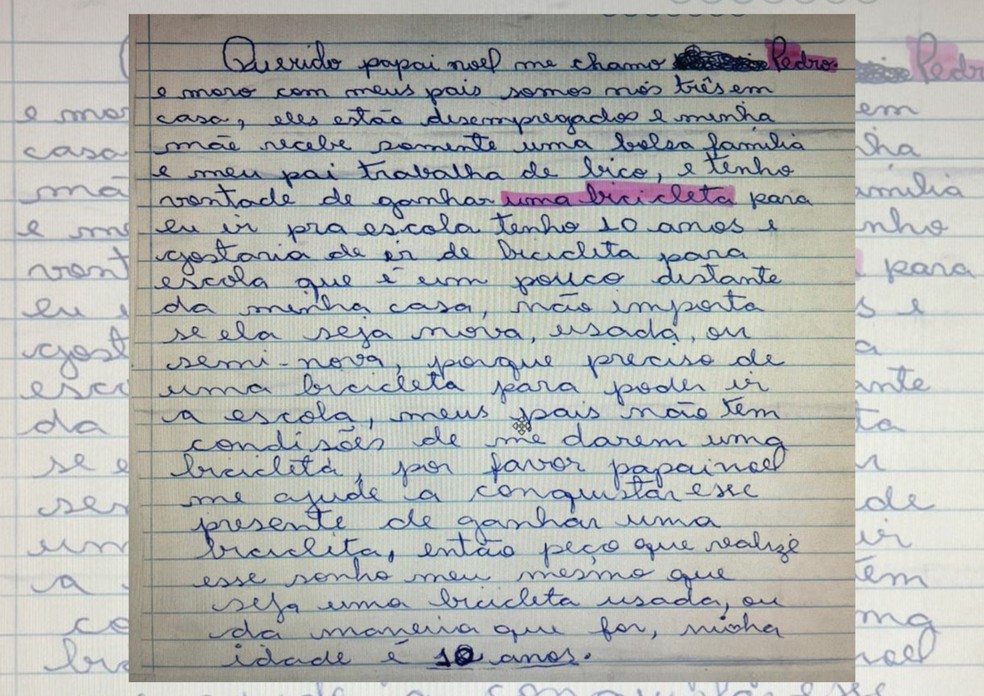 Querido papai noel me chamo Pedro
e moro com meus pais somos nós três em
casa, eles estão disempregados e minha
mãe recebe somente uma bolsa família
e meu pai trabalha de bico, e tenho
vontade de ganhar uma bicicleta para
eu ir pra escola tenho 10 anos e
gostaria de ir de bicicleta para
escola que é um pouco distante
da minha casa, não importa
se ela seja nova, usada, ou
semi-nova, porque preciso de
uma bicicleta para poder ir
a escola, meus pais não tem
condisões de me darem uma
bicicleta, por favor papai noel
me ajude a conquistar esse
presente de ganhar uma
bicicleta, então peço que realize
esse sonho meu mesmo que
seja uma bicicleta usada, ou
da maneira que for, minha
idade é 10 anos.